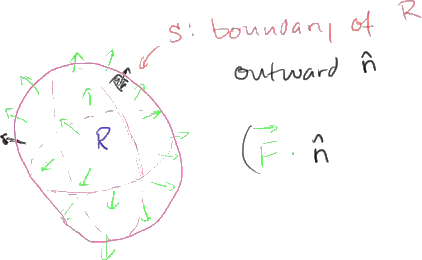 S: boundary of R
outward n̂
R
(F⃗ · n̂